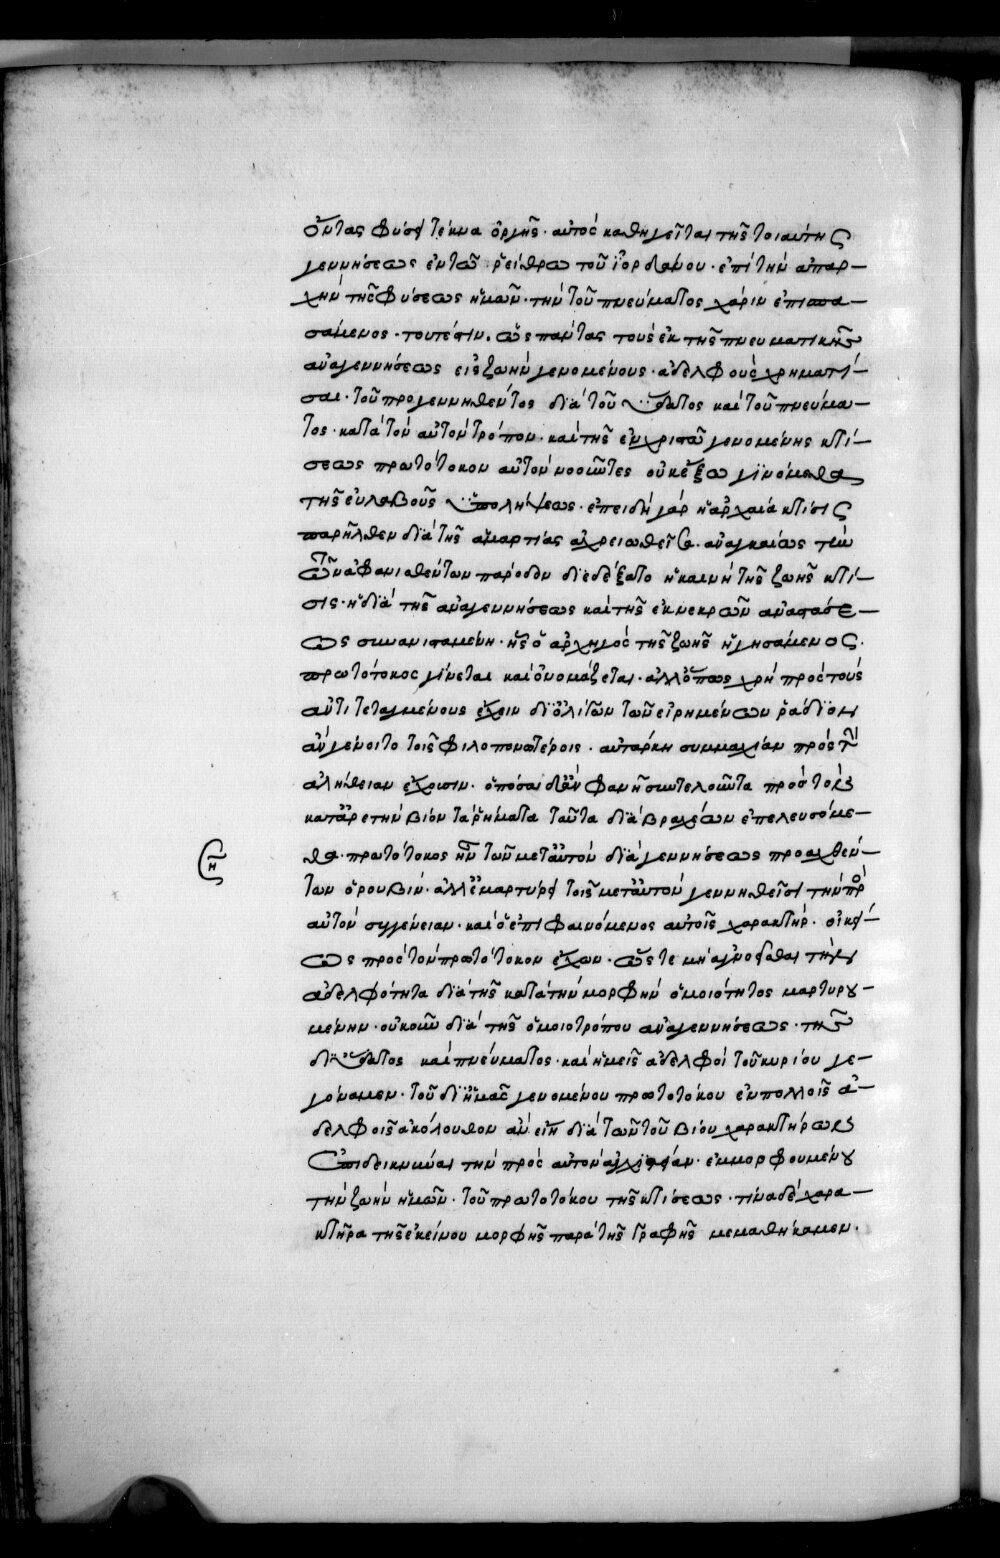 ὄντας φύσει τέκνα ὀργῆς· αὐτὸς καθηγεῖται τῆς τοιαύτης
γεννήσεως ἐν τῶ ῥείθρω τοῦ ἰορδάνου· ἐπὶ τὴν ἀπαρ-
χὴν τῆς φύσεως ἡμῶν· τὴν τοῦ πνεύματος χάριν ἐπισπα-
σάμενος· τουτέστιν. ὡς πάντας τοὺς ἐκ τῆς πνευματικῆς
ἀναγεννήσεως εἰς ζωὴν γενομένους· ἀδελφοὺς χρηματί-
σαι· τοῦ προγεννηθέντος διὰ τοῦ ὕδατος καὶ τοῦ πνεύμα-
τος· κατὰ τὸν αὐτὸν τρόπον· καὶ τῆς ἐν χριστῶ γενομένης κτί-
σεως πρωτότοκον αὐτὸν νοοῦντες οὐκ ἔξω γινόμεθα
τῆς εὐλαβοῦς ὑπολήψεως· ἐπειδὴ γὰρ ἡ ἀρχαία κτίσις
παρῆλθεν διὰ τῆς ἁμαρτίας ἀχρειωθεῖσα· ἀναγκαίως τὴν
τῶν ἀφανισθέντων πάροδον διεδέξατο ἡ καινὴ τῆς ζωῆς κτί-
σις· ἡ διὰ τῆς ἀναγεννήσεως καὶ τῆς ἐκ νεκρῶν ἀναστάσε-
ως συνανισταμένη· ἧς ὁ ἀρχηγὸς τῆς ζωῆς ἡγησάμενος·
πρωτότοκος γίνεται καὶ ὀνομάζεται· ἀλλ' ὅπως χρὴ πρὸς τοὺς
ἀντιτεταγμένους ἔχειν δι' ὀλίγων τῶν εἰρημένων ῥάδιον
ἂν γένοιτο τοῖς φιλοπονωτέροις· αὐτάρκη συμμαχίαν πρὸς τὴν
ἀλήθειαν ἔχουσιν· ὁπόσα δ' ἂν φανῆ συντελοῦντα πρὸς τὸν
κατ' ἀρετὴν βίον τὰ ῥήματα ταῦτα διὰ βραχέων ἐπελευσόμε-
θα· πρωτότοκος ἦν τῶν μετ' αὐτὸν διὰ γεννήσεως προαχθέν-
των ὁ ρουβίν· ἀλλ' ἐμαρτύρει τοῖς μετ' αὐτὸν γεννηθεῖσι τὴν πρὸς
αὐτὸν συγγένειαν· καὶ ὁ ἐπιφαινόμενος αὐτοῖς χαρακτήρ· οἰκεί-
ως πρὸς τὸν πρωτότοκον ἔχων· ὥστε μὴ ἀγνοεῖσθαι τὴν
ἀδελφότητα διὰ τῆς κατὰ τὴν μορφὴν ὁμοιότητος μαρτυρου-
μένην· οὐκοῦν διὰ τῆς ὁμοιοτρόπου ἀναγεννήσεως· τῆς
δι' ὕδατος καὶ πνεύματος· καὶ ἡμεῖς ἀδελφοὶ τοῦ κυρίου γε-
γόναμεν· τοῦ δι' ἡμᾶς γενομένου πρωτοτόκου ἐν πολλοῖς ἀ-
δελφοῖς ἀκόλουθον ἂν εἴη διὰ τῶν τοῦ βίου χαρακτήρων
ἐπιδεικνύναι τὴν πρὸς αὐτὸν ἀγχιστείαν· ἐμμορφουμένου
τὴν ζωὴν ἡμῶν· τοῦ πρωτοτόκου τῆς κτίσεως· τίνα δὲ χαρα-
κτῆρα τῆς ἐκείνου μορφῆς παρὰ τῆς γραφῆς μεμαθήκαμεν·